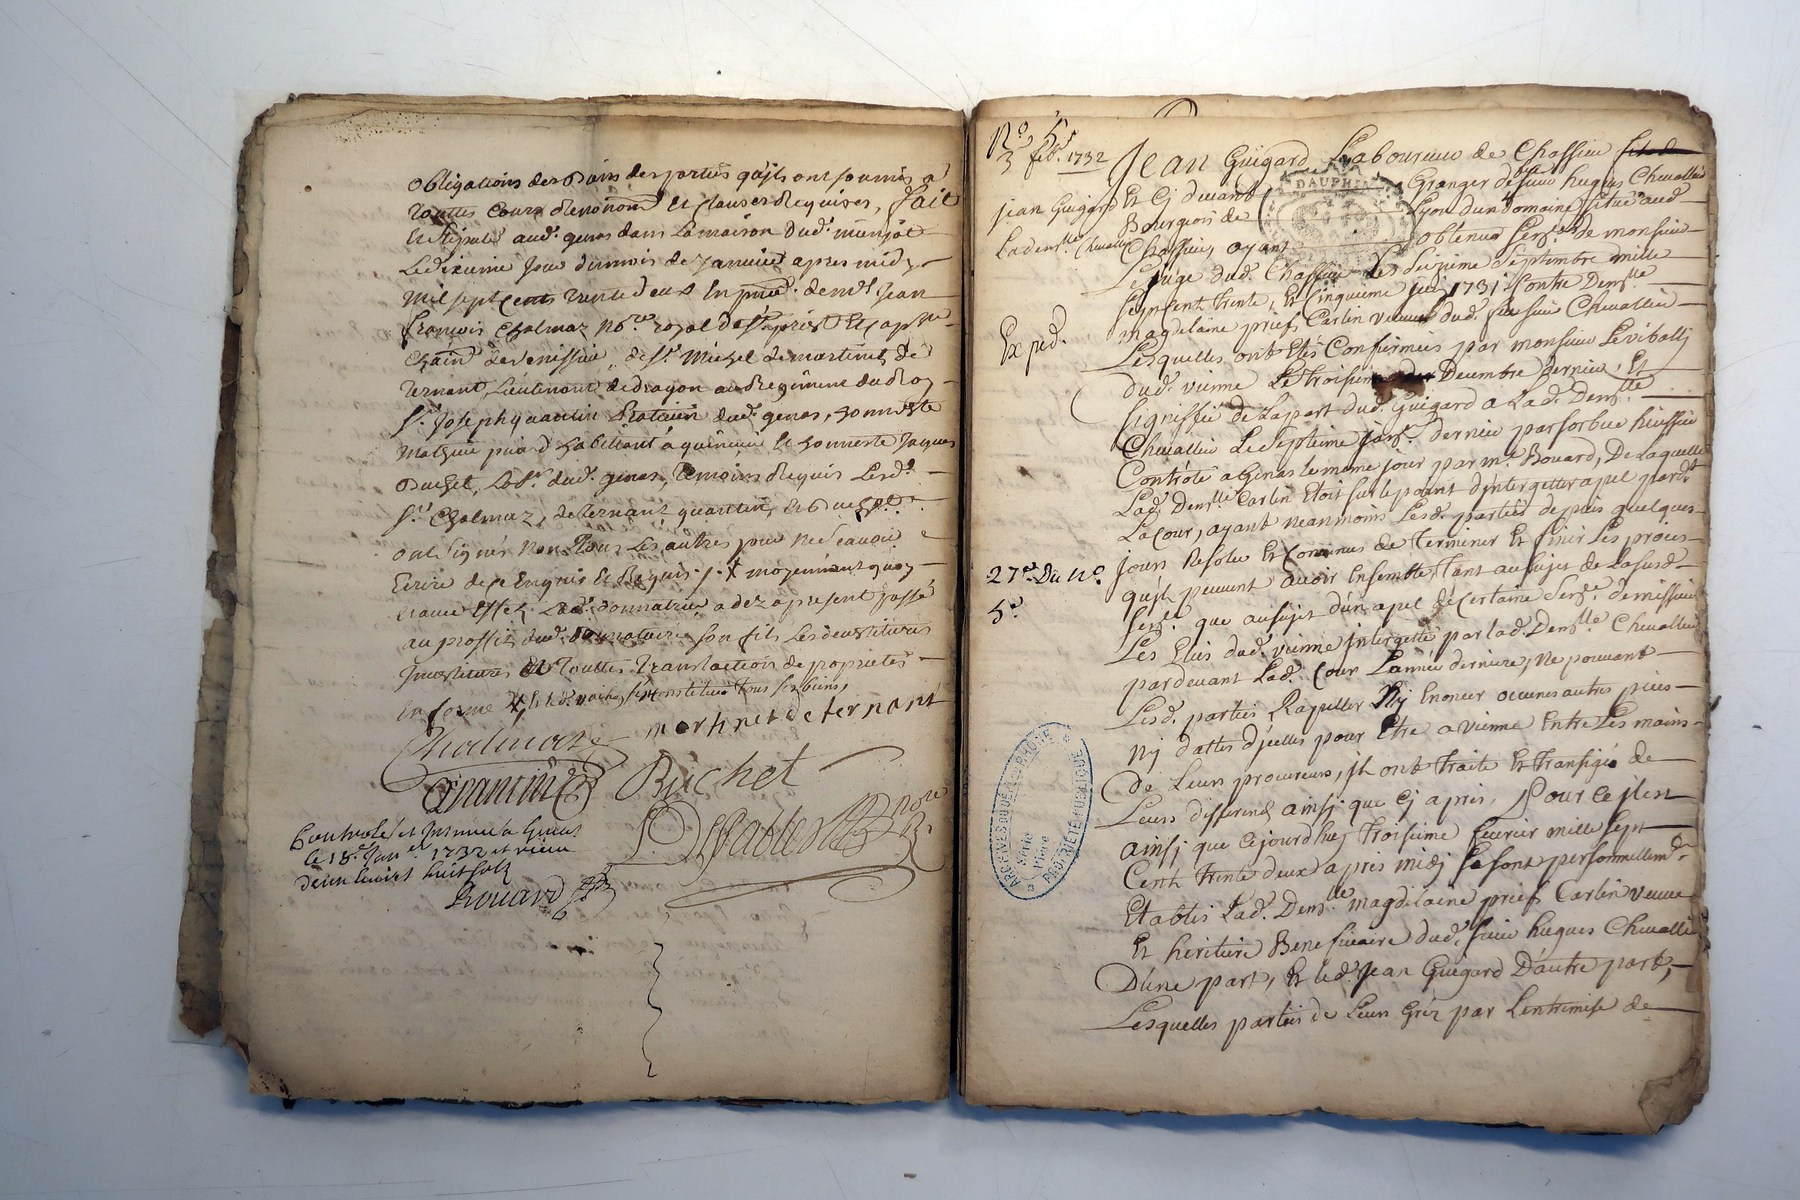 obligations des biens des parties qu'ils ont soumis a
touttes Cours Renonон et Clauses Requises, fait
Et stipulé aud. genas dans la maison dud. mussjot
Le dixieme Jour du mois de Janvier apres midy
Mil sept Cents trente deux En pnce. de mre Jean
françois Chalmaz Nore. royal de st. priest Et Cap.ne
Chain de Venissieu, de sr. Michel de martinet de
ternant, Lieutenant de dragon au Regiment du Roy
sr. Joseph quantin dud. genas, honneste
Mathieu habittant a Et honneste Jaques
Buchet, Labr. dud. genas, temoins Requis Lesd.
srs. Chalmaz, de ternant quantin, et Buchet
ont signés Non Pous Les autres pour ne scavoir
Ecrire de ce Enquis Et Requis ./. X moyennant quoy
Lad. donnatrice a dez a present passé
au proffit dud. donnataire son fils Les devestitures
Investitures Et touttes translactions de proprietés
En forme constitué tous ses biens,
Chalmaz
martinet de ternant
Quantin
Buchet
nore
Controlé et Insinué a Genas
le 18e. Janer. 1732 et recu
deux livres huit sols
Bouard
No. 5
3 febr. 1732
jean Guigard Et
La demlle Chevallier
Exped.
27e. Du No.
5e.
DAUPHINE
Jean Guigard Laboureur de Chassieu
Et Cy devant Granger de sieur hugues Chevallier
Bourgeois de Lyon dun domaine situé aud.
Chassieu, ayant obtenu senbce de monsieur
Le juge dud. Chassieu Les seizieme septembre mille
sepncent trente, Et Cinquieme 1731 Contre Demlle
magdelaine Carlin veuve dud. sieur Chevallier
Lesquelles ont Etés Confirmées par monsieur Levibally
dud. vienne Le troisieme Decembre dernier, Et
signiffié de la part dud. Guigard a Lad. Demlle
Chevallier Le septieme janr. dernier par sorbue
Controlé a Genas le meme jour par mr. Bouard, De Laquelle
Lad. Demlle Carlin Etoit sur le point d'interjetter apel pardt
La Cour, ayant neanmoins Lesd. parties depuis quelques
jours Resolu Et Convenus de terminer Et finir Les proces
qu'ils peuvent avoir Ensemble, tant au sujet de La susd.
sence. que au sujet d'un apel de Certaine sence. de messieurs
Les Elus dud. vienne interjetté par lad. Demlle Chevallier
pardevant Lad. Cour L'année derniere, Ne pouvant
Lesd. parties Rapeller Ny Enoncer aucunes autres pieces
Ny dattes d'jcelles pour Etre a vienne Entre Les mains
De Leurs procureurs, jls ont traité Et transigés de
Leurs differends ainsj que Cj apres, Pour Ce jlest
ainsj que Cejourdhuy troisieme fevrier mille sept
Cents trente deux apres midj se sont personnellemt.
Etablis Lad. Demlle magdelaine Carlin veuve
Et heritiere Beneficiaire dud. sieur hugues Chevallier
D'une part, Et led. Jean Guigard D'autre part,
Lesquelles parties de Leurs Gréz par L'entremise de
ARCHIVES DU RHONE
PROPRIÉTÉ PUBLIQUE
Série
Pièce